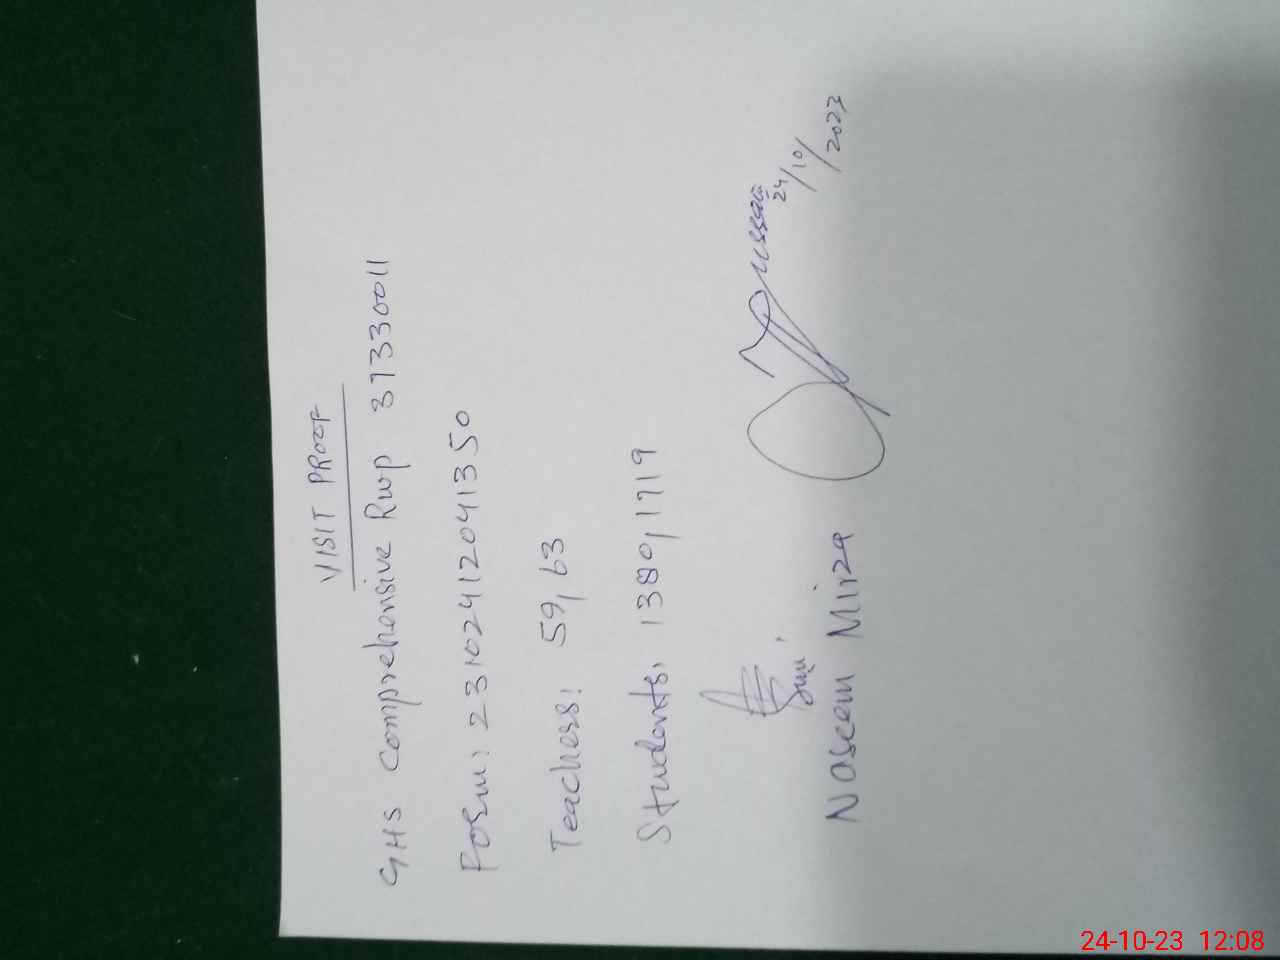 VISIT PROOF
GHS Comprehensive Rwp 37330011
Form: 23102412041350
Teachers: 59/63
Students: 1380/1719
24/10/2023
Naseem Mirza
24-10-23 12:08